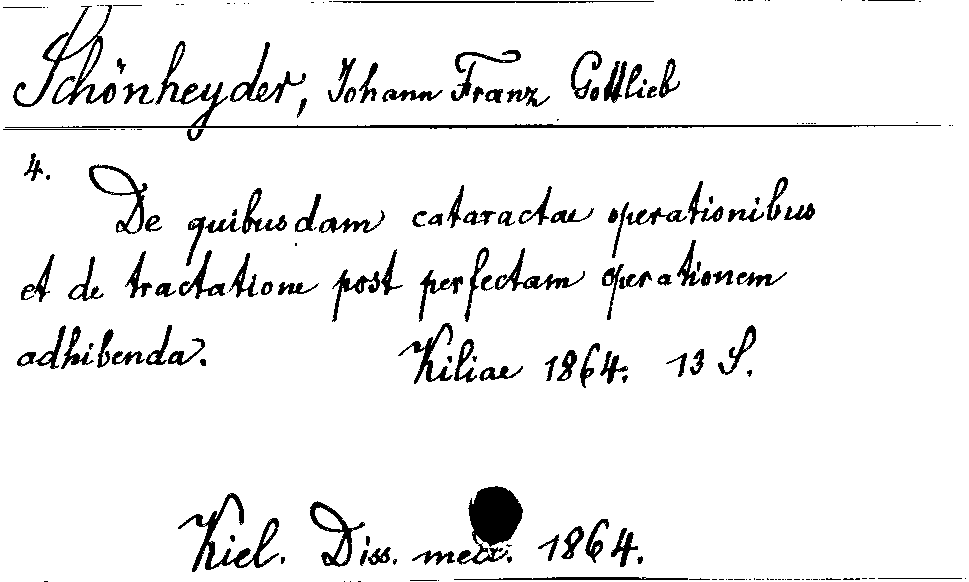 Schönheyder, Johann Franz Gottlieb
4.
De quibusdam cataractae operationibus
et de tractatione post perfectam operationem
adhibenda. Kiliae 1864. 13 S.
Kiel. Diss. med. 1864.